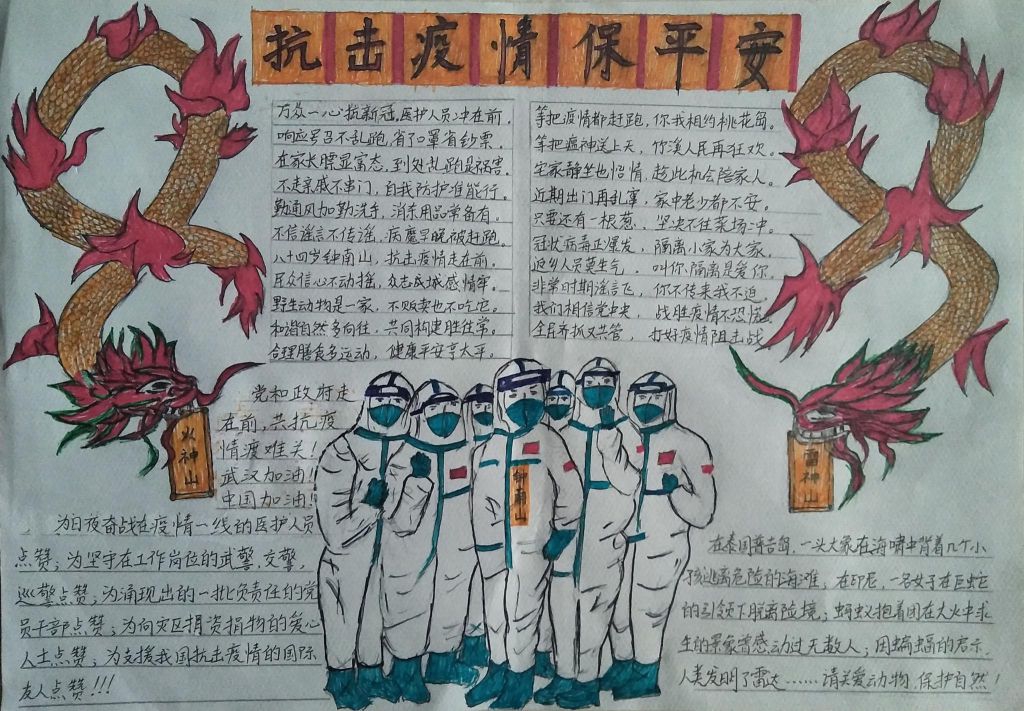 抗击疫情保平安
万众一心抗新冠,医护人员冲在前,
响应号召不乱跑,省了口罩省钞票。
在家长膘显富态,到处乱跑是祸害。
不走亲戚不串门,自我防护准能行。
勤通风加勤洗手,消杀用品常备有。
不信谣言不传谣,病魔早晚被赶跑。
八十四岁钟南山,抗击疫情走在前。
民众信心不动摇,众志成城感情牢。
野生动物是一家,不贩卖也不吃它。
和谐自然多向往,共同构建胜往常。
合理膳食多运动,健康平安享太平。
等把疫情都赶跑,你我相约桃花岛。
等把瘟神送上天,你溪人民再狂欢。
宅家静坐也怡情,趁此机会陪家人。
近期出门再乱窜,家中老少都不安。
只要还有一根葱,坚决不往菜场冲。
冠状病毒正爆发,隔离小家为大家。
返乡人员莫生气,叫你隔离是爱你。
非常时期谣言飞,你不传来我不追。
我们相信党中央,战胜疫情不恐慌。
全民齐抓又共管,打好疫情阻击战
党和政府走
在前,共抗疫
情渡难关!
武汉加油!
中国加油!
火神山
钟南山
雷神山
为日夜奋战在疫情一线的医护人员
点赞;为坚守在工作岗位的武警,交警,
巡警点赞;为涌现出的一批负责任的党
员干部点赞;为向灾区捐资捐物的爱心
人士点赞;为支援我国抗击疫情的国际
友人点赞!!!
在泰国普吉岛,一头大象在海啸中背着几个小
孩逃离危险的海滩,在印尼,一名女子在巨蛇
的引领下脱离险境;蚂蚁抱着团在大火中求
生的景象曾感动过无数人;因蝙蝠的启示,
人类发明了雷达……请关爱动物,保护自然!